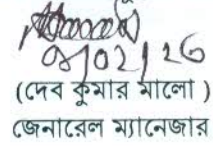 ০৮/02/26
(দেব কুমার মালো)
জেনারেল ম্যানেজার